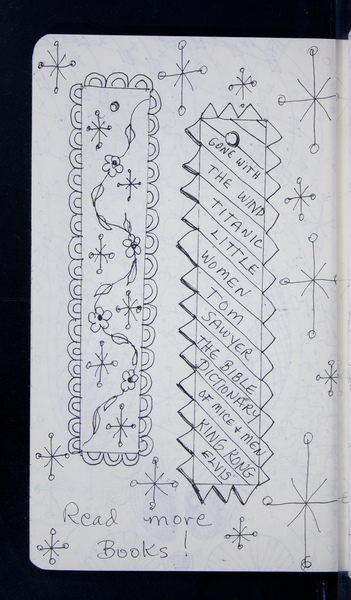 GONE WITH
THE WIND
TITANIC
LITTLE
WOMEN
TOM
SAWYER
THE BIBLE
DICTIONARY
OF MICE + MEN
KING KONG
ELVIS
Read more
Books!